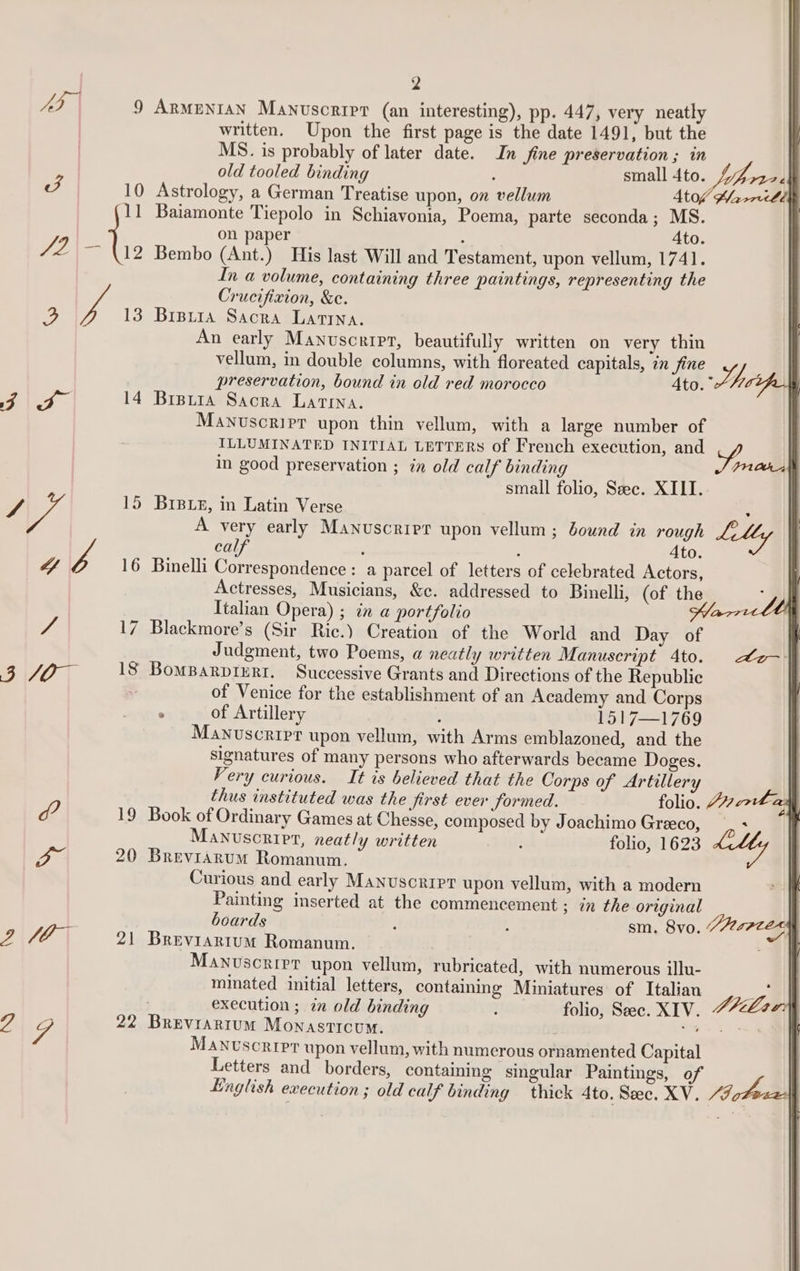 2
9 ARMENIAN MANUSCRIPT (an interesting), pp. 447, very neatly
written. Upon the first page is the date 1491, but the
MS. is probably of later date. In fine preservation; in
old tooled binding . small 4to.
3 10 Astrology, a German Treatise upon, on vellum 4to
11 Baiamonte Tiepolo in Schiavonia, Poema, parte seconda; MS.
on paper . 4to.
12 — 12 Bembo (Ant.) His last Will and Testament, upon vellum, 1741.
In a volume, containing three paintings, representing the
Crucifixion, &c.
3 4 13 BIBLIA SACRA LATINA.
An early MANUSCRIPT, beautifully written on very thin
vellum, in double columns, with floreated capitals, in fine
preservation, bound in old red morocco 4to. Thorpe
3 5 14 BIBLIA SACRA LATINA.
MANUSCRIPT upon thin vellum, with a large number of
ILLUMINATED INITIAL LETTERS of French execution, and
in good preservation; in old calf binding
small folio, Sæc. XIII.
15 BIBLE, in Latin Verse
A very early MANUSCRIPT upon vellum; bound in rough Lilly
calf . . 4to.
4 6 16 Binelli Correspondence: a parcel of letters of celebrated Actors,
Actresses, Musicians, &c. addressed to Binelli, (of the
Italian Opera); in a portfolio
17 Blackmore's (Sir Ric.) Creation of the World and Day of
Judgment, two Poems, a neatly written Manuscript 4to. do
3 10 18 BOMBARDIERI. Successive Grants and Directions of the Republic
of Venice for the establishment of an Academy and Corps
of Artillery . 1517—1769
MANUSCRIPT upon vellum, with Arms emblazoned, and the
signatures of many persons who afterwards became Doges.
Very curious. It is believed that the Corps of Artillery
thus instituted was the first ever formed. folio.
19 Book of Ordinary Games at Chesse, composed by Joachimo Græco,
MANUSCRIPT, neatly written . folio, 1623 Lilly
5 20 BREVIARUM Romanum.
Curious and early MANUSCRIPT upon vellum, with a modern
Painting inserted at the commencement; in the original
boards . . sm. 8vo.
2 10 21 BREVIARIUM Romanum.
MANUSCRIPT upon vellum, rubricated, with numerous illu-
minated initial letters, containing Miniatures of Italian
execution; in old binding . folio, Sæc. XIV.
2 9 22 BREVIARIUM MONASTICUM.
MANUSCRIPT upon vellum, with numerous ornamented Capital
Letters and borders, containing singular Paintings, of
English execution; old calf binding thick 4to. Sæc. XV.